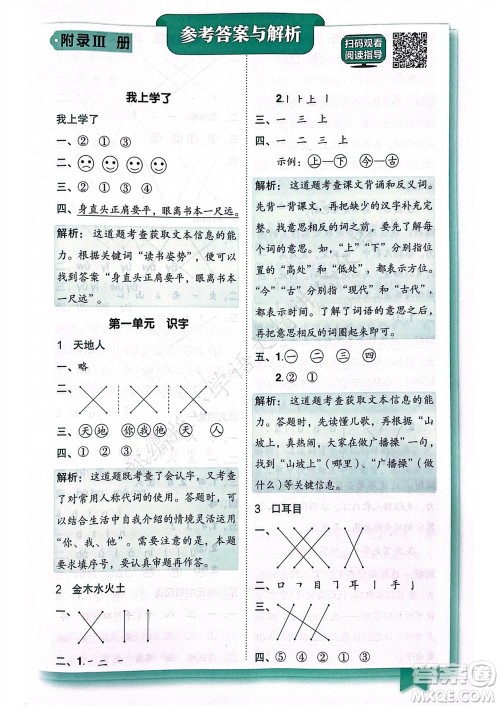 附录Ⅲ 册
参考答案与解析
扫码观看
阅读指导
我上学了
我上学了
一、②①③
二、
三、②①③④
四、身直头正肩要平，眼离书本一尺远。
解析：这道题考查获取文本信息的能
力。根据关键词“读书姿势”，便可以
找到答案“身直头正肩要平，眼离书本一
尺远”。
第一单元 识字
1 天地人
一、略
二、
三、天地 你我他 天人
四、①②③
解析：这道题既考查了会认字，又考查
了对常用人称代词的使用。答题时，可
以结合生活中自我介绍的情境灵活运用
“你、我、他”。需要注意的是，本题要
求填序号，要认真审题再作答。
2 金木水火土
一、
二、1.
2.
三、一 三 上
四、一 二 三 上
示例：上—下 今—古
解析：这道题考查课文背诵和反义词。
先背一背课文，把缺少的汉字补充完
整。找意思相反的词之前，要先理解
词语的意思，如“上”“下”分别指位
置的“高处”和“低处”，都表示方位。
“今”“古”分别指“现代”和“古代”，
都表示时间。了解了词语的意思之后，
再把意思相反的词圈起来即可。
五、1.㊀㊁㊂㊃
2.②①
解析：这道题考查获取文本信息的能
力。答题时，先读懂儿歌，找到“山
坡上，真热闹，大家来做广播操”一句，
圈出“山坡上”（哪里）、“广播操”（做
什么）等关键信息。
3 口耳目
一、
二、口
三、
四、⑤④②①③
答案圈